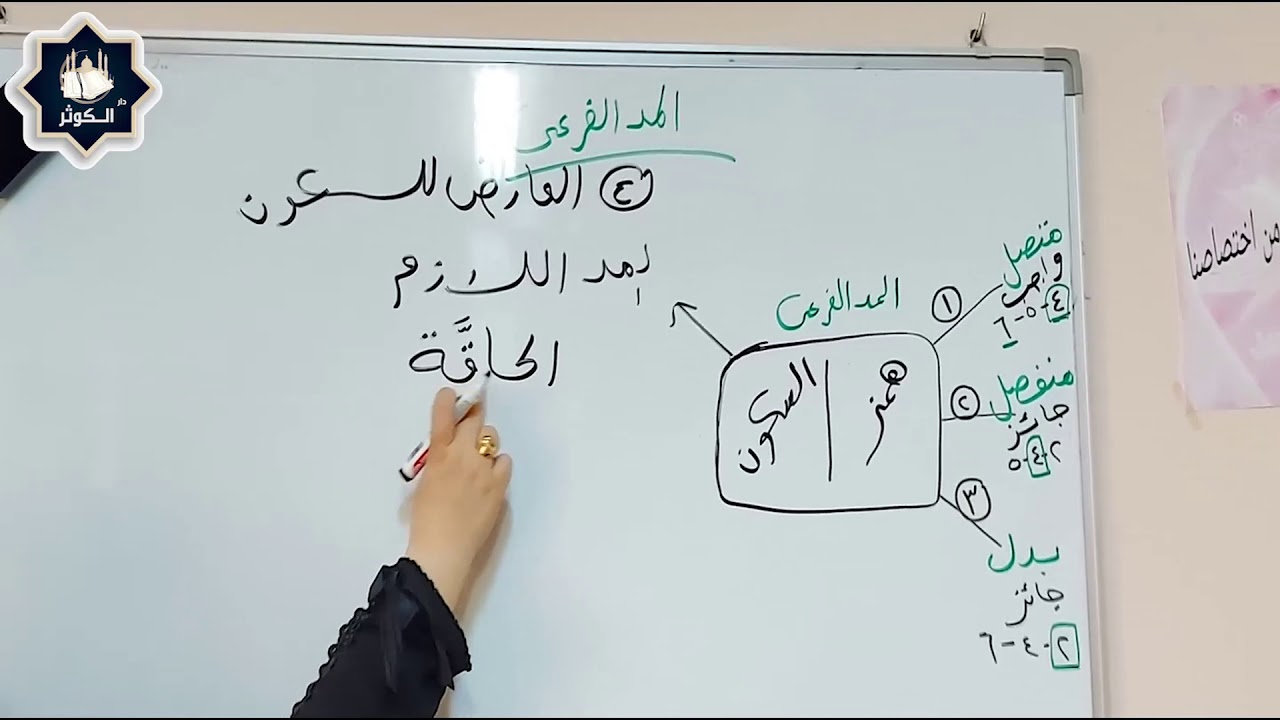 دار
الكوثر
المد الفرعي
٤ العارض للسكون
المد اللازم
الحاقَّة
المد الفرعي
همز
السكون
١
متصل
واجب
٤-٥-٦
٢
منفصل
جائز
٢-٤-٥
٣
بدل
جائز
٢-٤-٦
من اختصاصنا